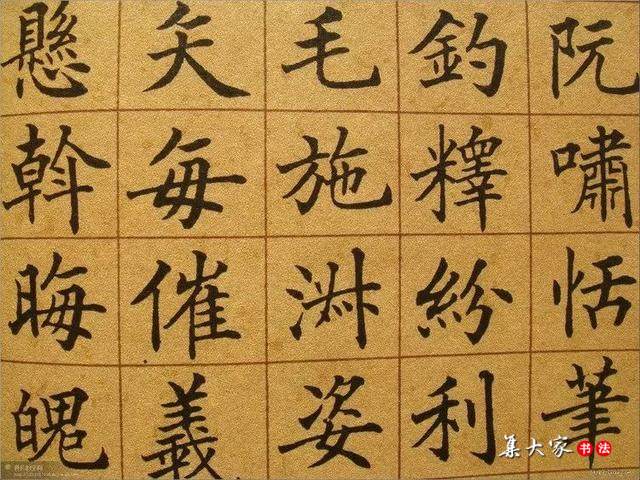 阮嘯恬筆
釣釋紛利
毛施淑姿
矢每催羲
懸斡晦魄
集大家 书法